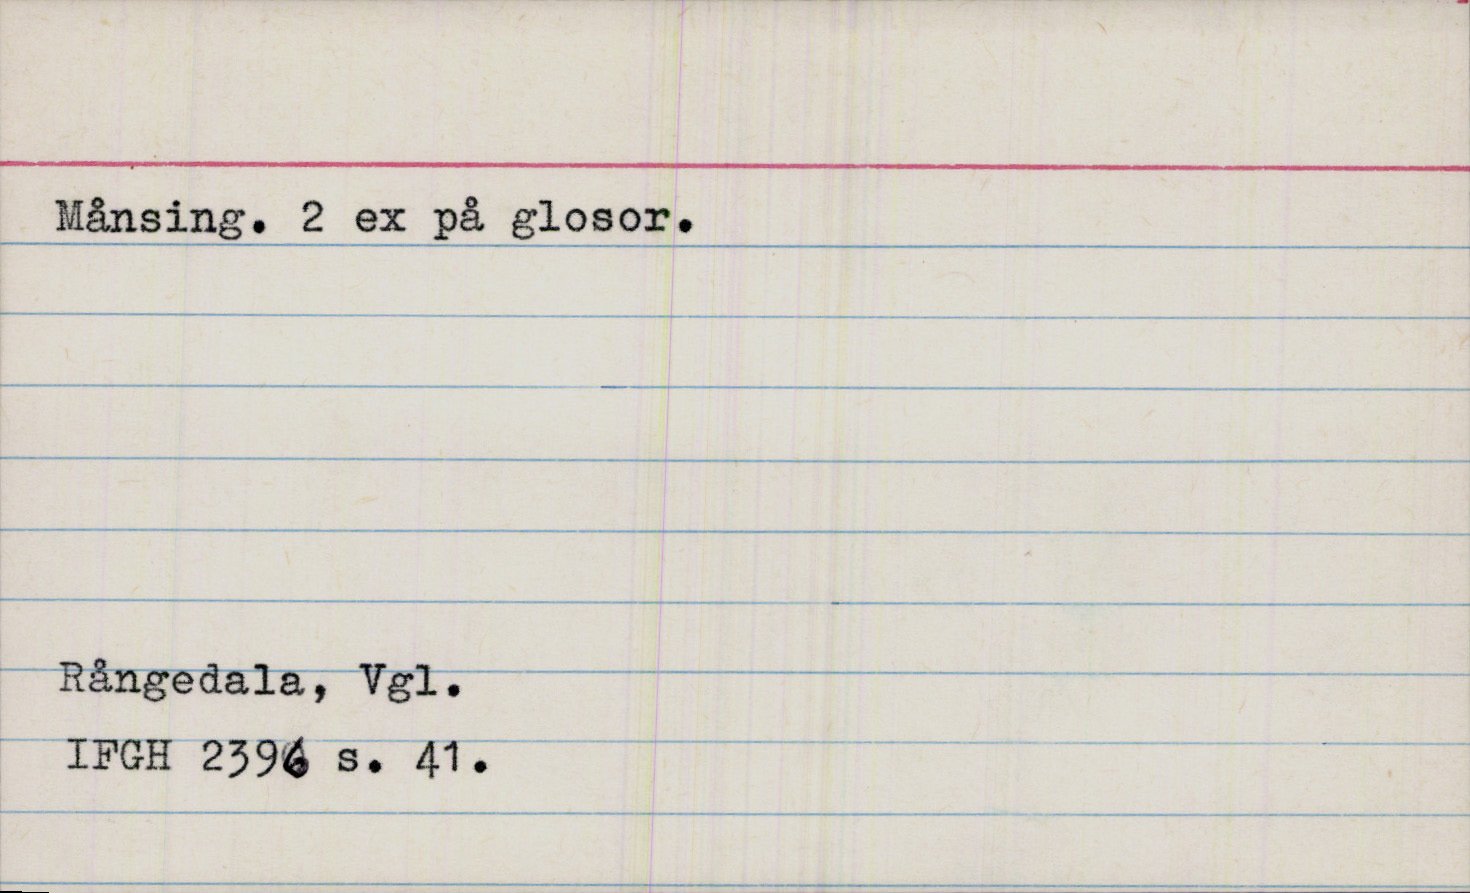 Månsing. 2 ex på glosor.
Rångedala, Vgl.
IFGH 2396 s. 41.